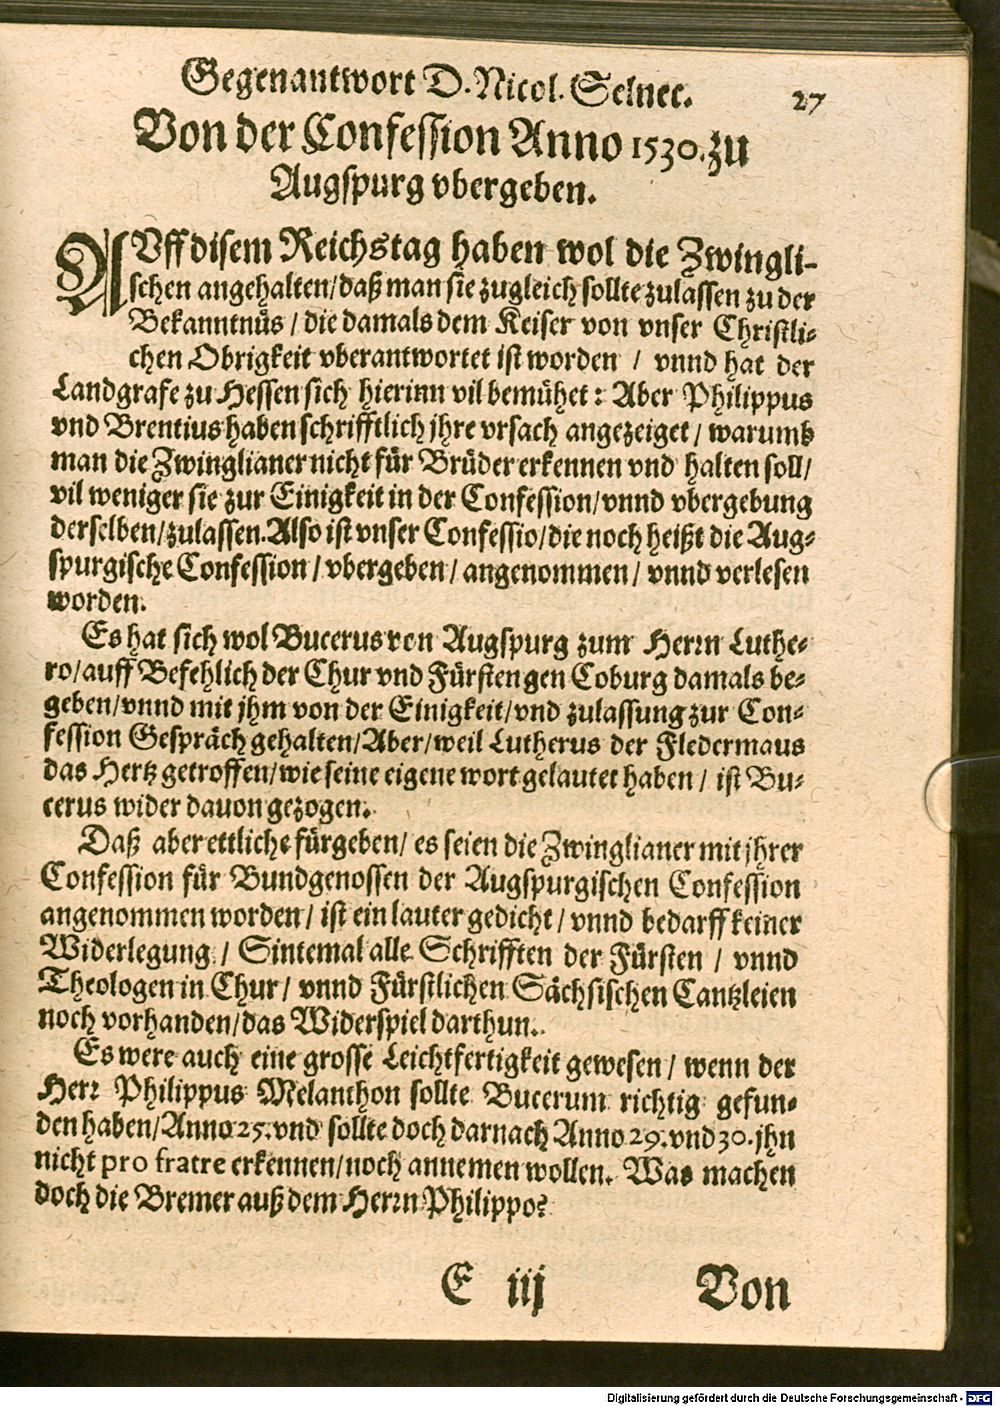 Gegenantwort D. Nicol. Selnec.
27
Von der Confession Anno 1530. zu
Augspurg vbergeben.
AVff disem Reichstag haben wol die Zwingli-
schen angehalten/daß man sie zugleich sollte zulassen zu der
Bekanntnüs / die damals dem Keiser von vnser Christli-
chen Obrigkeit vberantwortet ist worden / vnnd hat der
Landgrafe zu Hessen sich hierinn vil bemühet : Aber Philippus
vnd Brentius haben schrifftlich jhre vrsach angezeiget / warumb
man die Zwinglianer nicht für Brüder erkennen vnd halten soll/
vil weniger sie zur Einigkeit in der Confession/vnnd vbergebung
derselben/zulassen. Also ist vnser Confessio/die noch heißt die Aug-
spurgische Confession / vbergeben / angenommen / vnnd verlesen
worden.
Es hat sich wol Bucerus von Augspurg zum Herrn Luthe-
ro/auff Befehlich der Chur vnd Fürsten gen Coburg damals be-
geben/vnnd mit jhm von der Einigkeit/vnd zulassung zur Con-
fession Gespräch gehalten/Aber/weil Lutherus der Fledermaus
das Hertz getroffen/wie seine eigene wort gelautet haben / ist Bu-
cerus wider dauon gezogen.
Daß aber ettliche fürgeben/ es seien die Zwinglianer mit jhrer
Confession für Bundgenossen der Augspurgischen Confession
angenommen worden / ist ein lauter gedicht / vnnd bedarff keiner
Widerlegung / Sintemal alle Schrifften der Fürsten / vnnd
Theologen in Chur / vnnd Fürstlichen Sächsischen Cantzleien
noch vorhanden/das Widerspiel darthun.
Es were auch eine grosse Leichtfertigkeit gewesen / wenn der
Herr Philippus Melanthon sollte Bucerum richtig gefun-
den haben/Anno 25. vnd sollte doch darnach Anno 29. vnd 30. jhn
nicht pro fratre erkennen/noch annemen wollen. Was machen
doch die Bremer auß dem Herrn Philippo?
E iij
Von
Digitalisierung gefördert durch die Deutsche Forschungsgemeinschaft - DFG